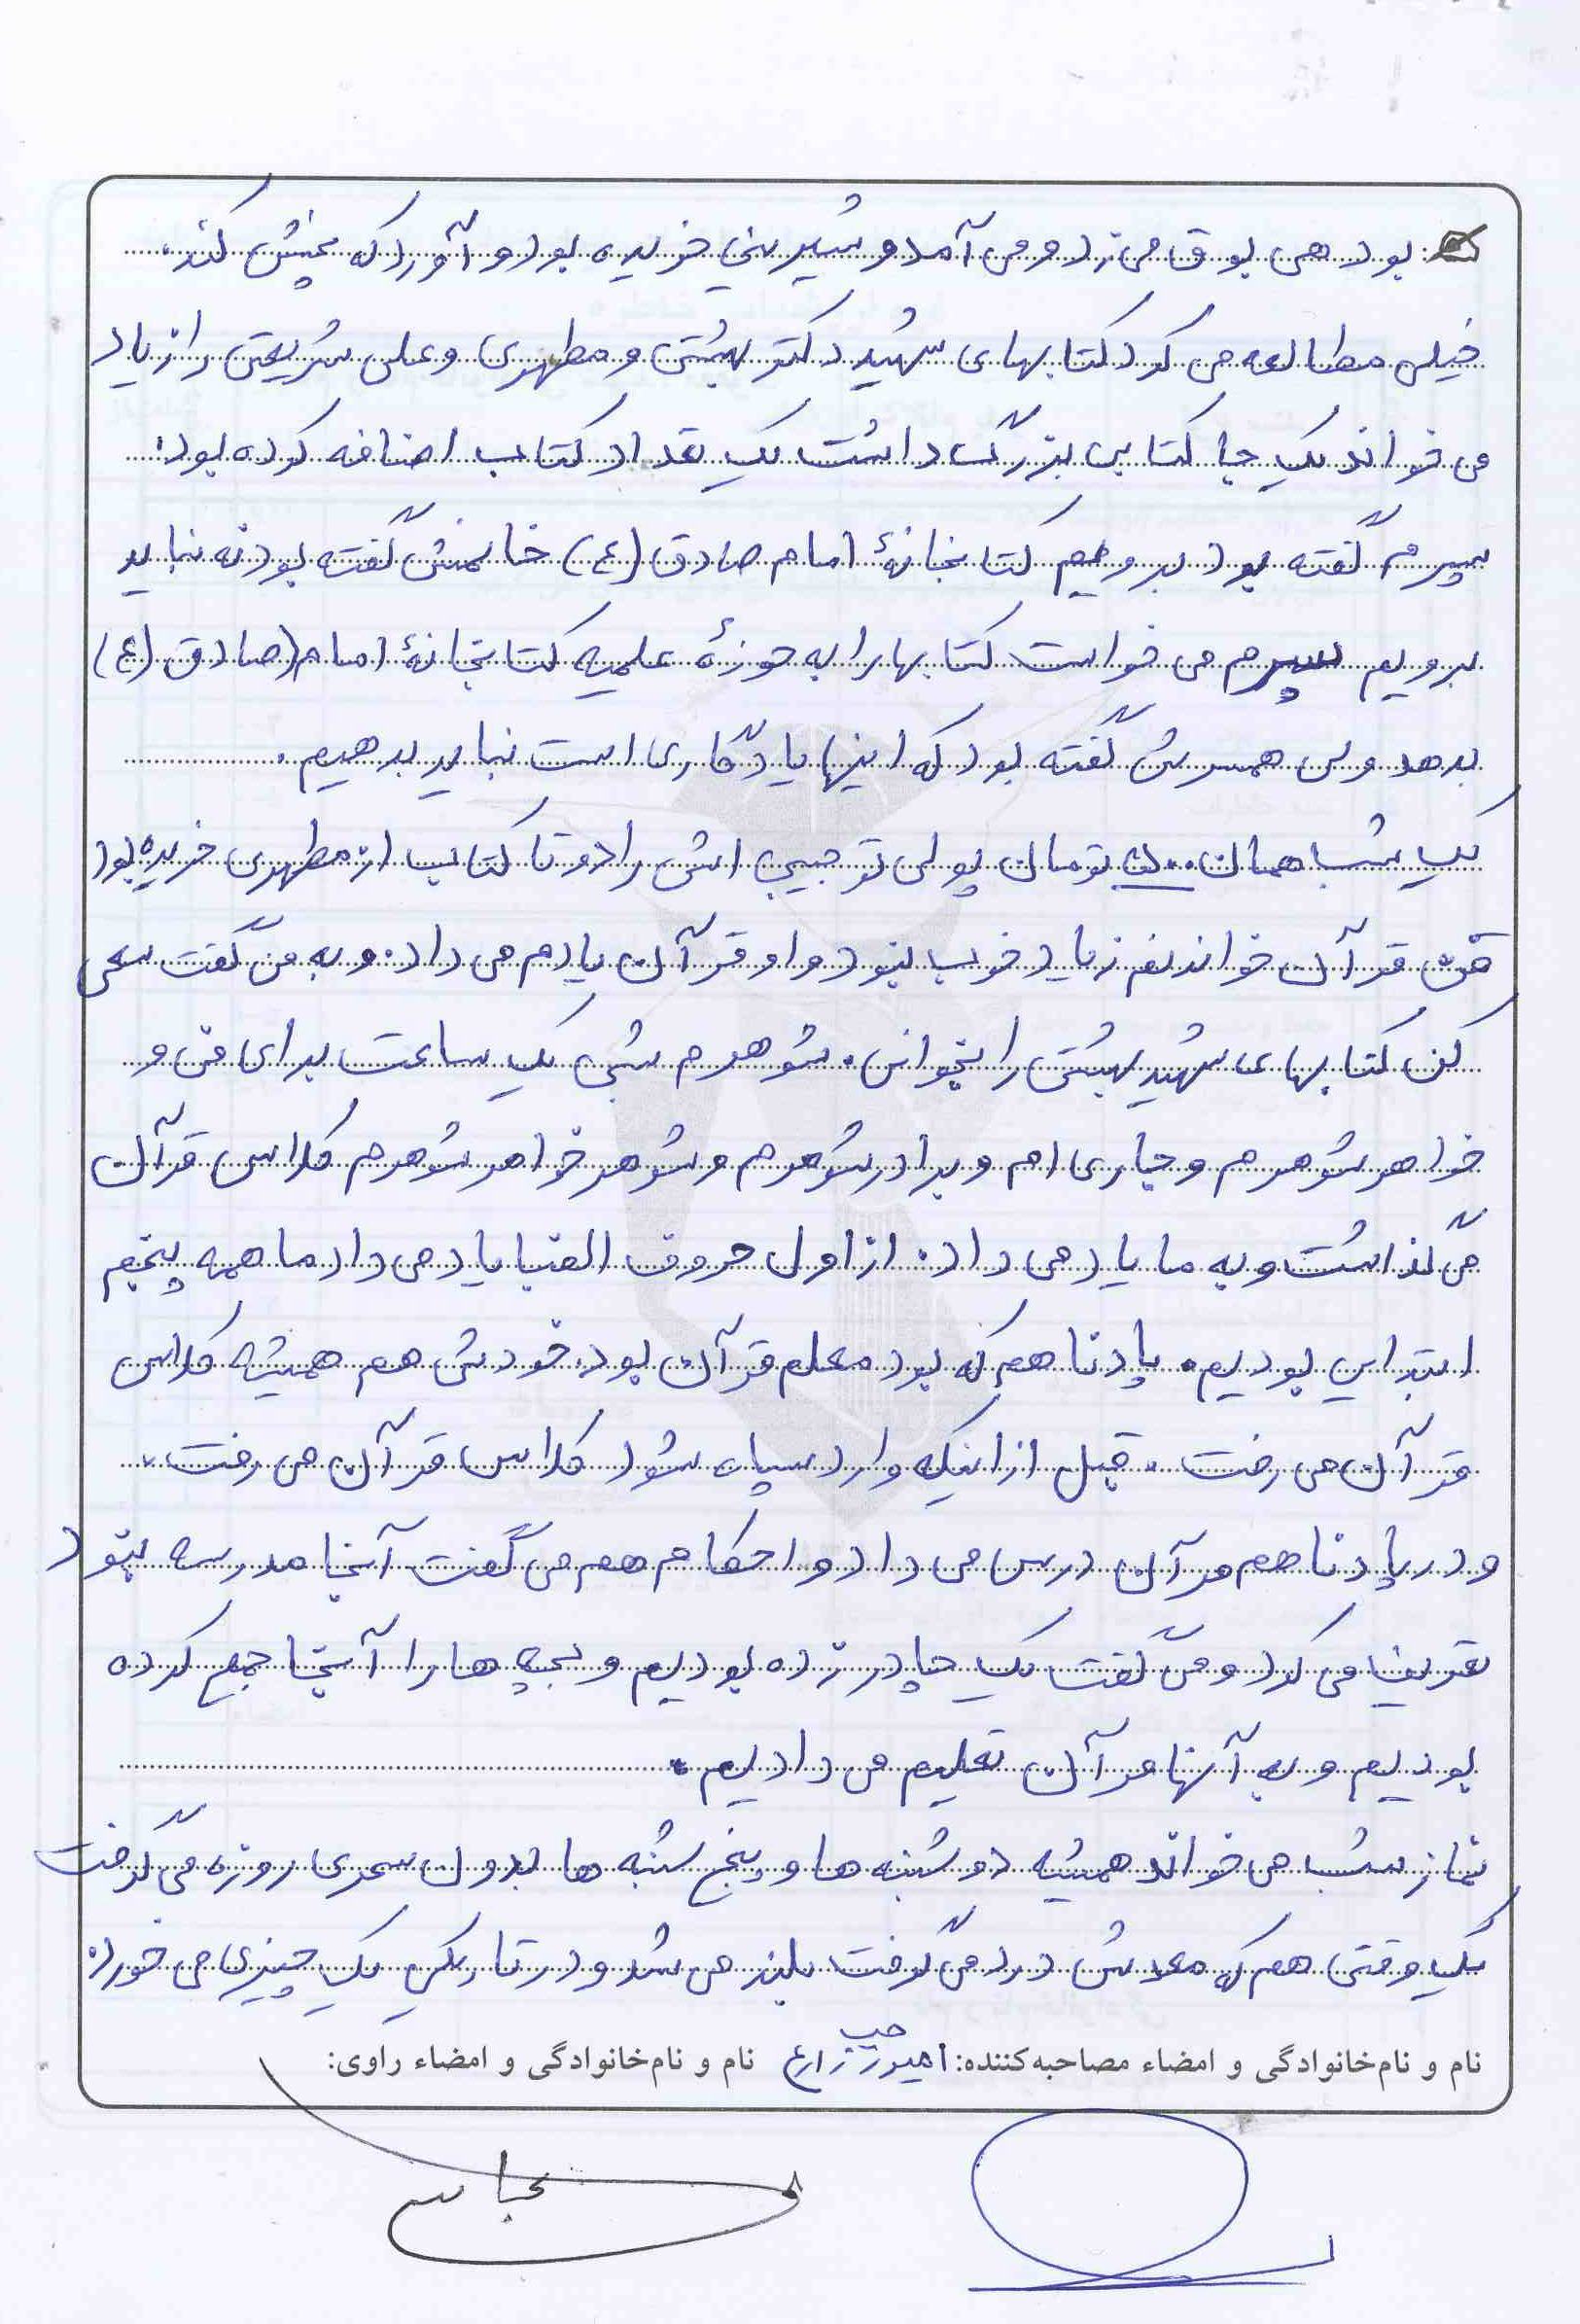 بود هی بوق می زد و می آمد و شیرینی خریده بود و آورد که پخش کند.
خیلی مطالعه می کرد کتابهای شهید دکتر بهشتی و مطهری و علی شریعتی را زیاد
می خواند یک جا کتابی بزرگ داشت یک تعداد کتاب اضافه کرده بود.
پسرم گفته بود برویم کتابخانهٔ امام صادق (ع) خانمش گفته بود نه نباید
برویم پسرم می خواست کتابها را به حوزهٔ علمیه کتابخانهٔ امام (صادق (ع)
بدهد ولی همسرش گفته بود که اینها یادگاری است نباید بدهیم.
یک شب همان تومان پولی تو جیبی اش را دو تا کتاب از مطهری خریده بود
من قرآن خواندنم زیاد خوب نبود و او قرآن یادم می داد. و به من گفت سعی
کن کتابهای شهید بهشتی را بخوانی. شوهرم شبی یک ساعت برای من و
خواهر شوهرم و جاری ام و برادر شوهرم و شوهر خواهر شوهرم کلاس قرآن
می گذاشت و به ما یاد می داد. از اول حروف الفبا یاد می داد ما همه پنجم
ابتدایی بودیم. پادنا هم که بود معلم قرآن بود. خودش هم همیشه کلاس
قرآن می رفت. قبل از اینکه وارد سپاه شود کلاس قرآن می رفت.
و در پادنا هم قرآن درس می داد و احکام هم می گفت آنجا مدرسه نبود
تعریف می کرد و می گفت یک چادر زده بودیم و بچه ها را آنجا جمع کرده
بودیم و به آنها قرآن تعلیم می دادیم.
نماز شب می خواند همیشه دوشنبه ها و پنج شنبه ها بدون سحری روزه می گرفت
یک وقتی هم که معدش درد می گرفت بلند می شد و در تاریکی یک چیزی می خورد.
نام و نام‌خانوادگی و امضاء مصاحبه‌کننده: زارع نام و نام‌خانوادگی و امضاء راوی: